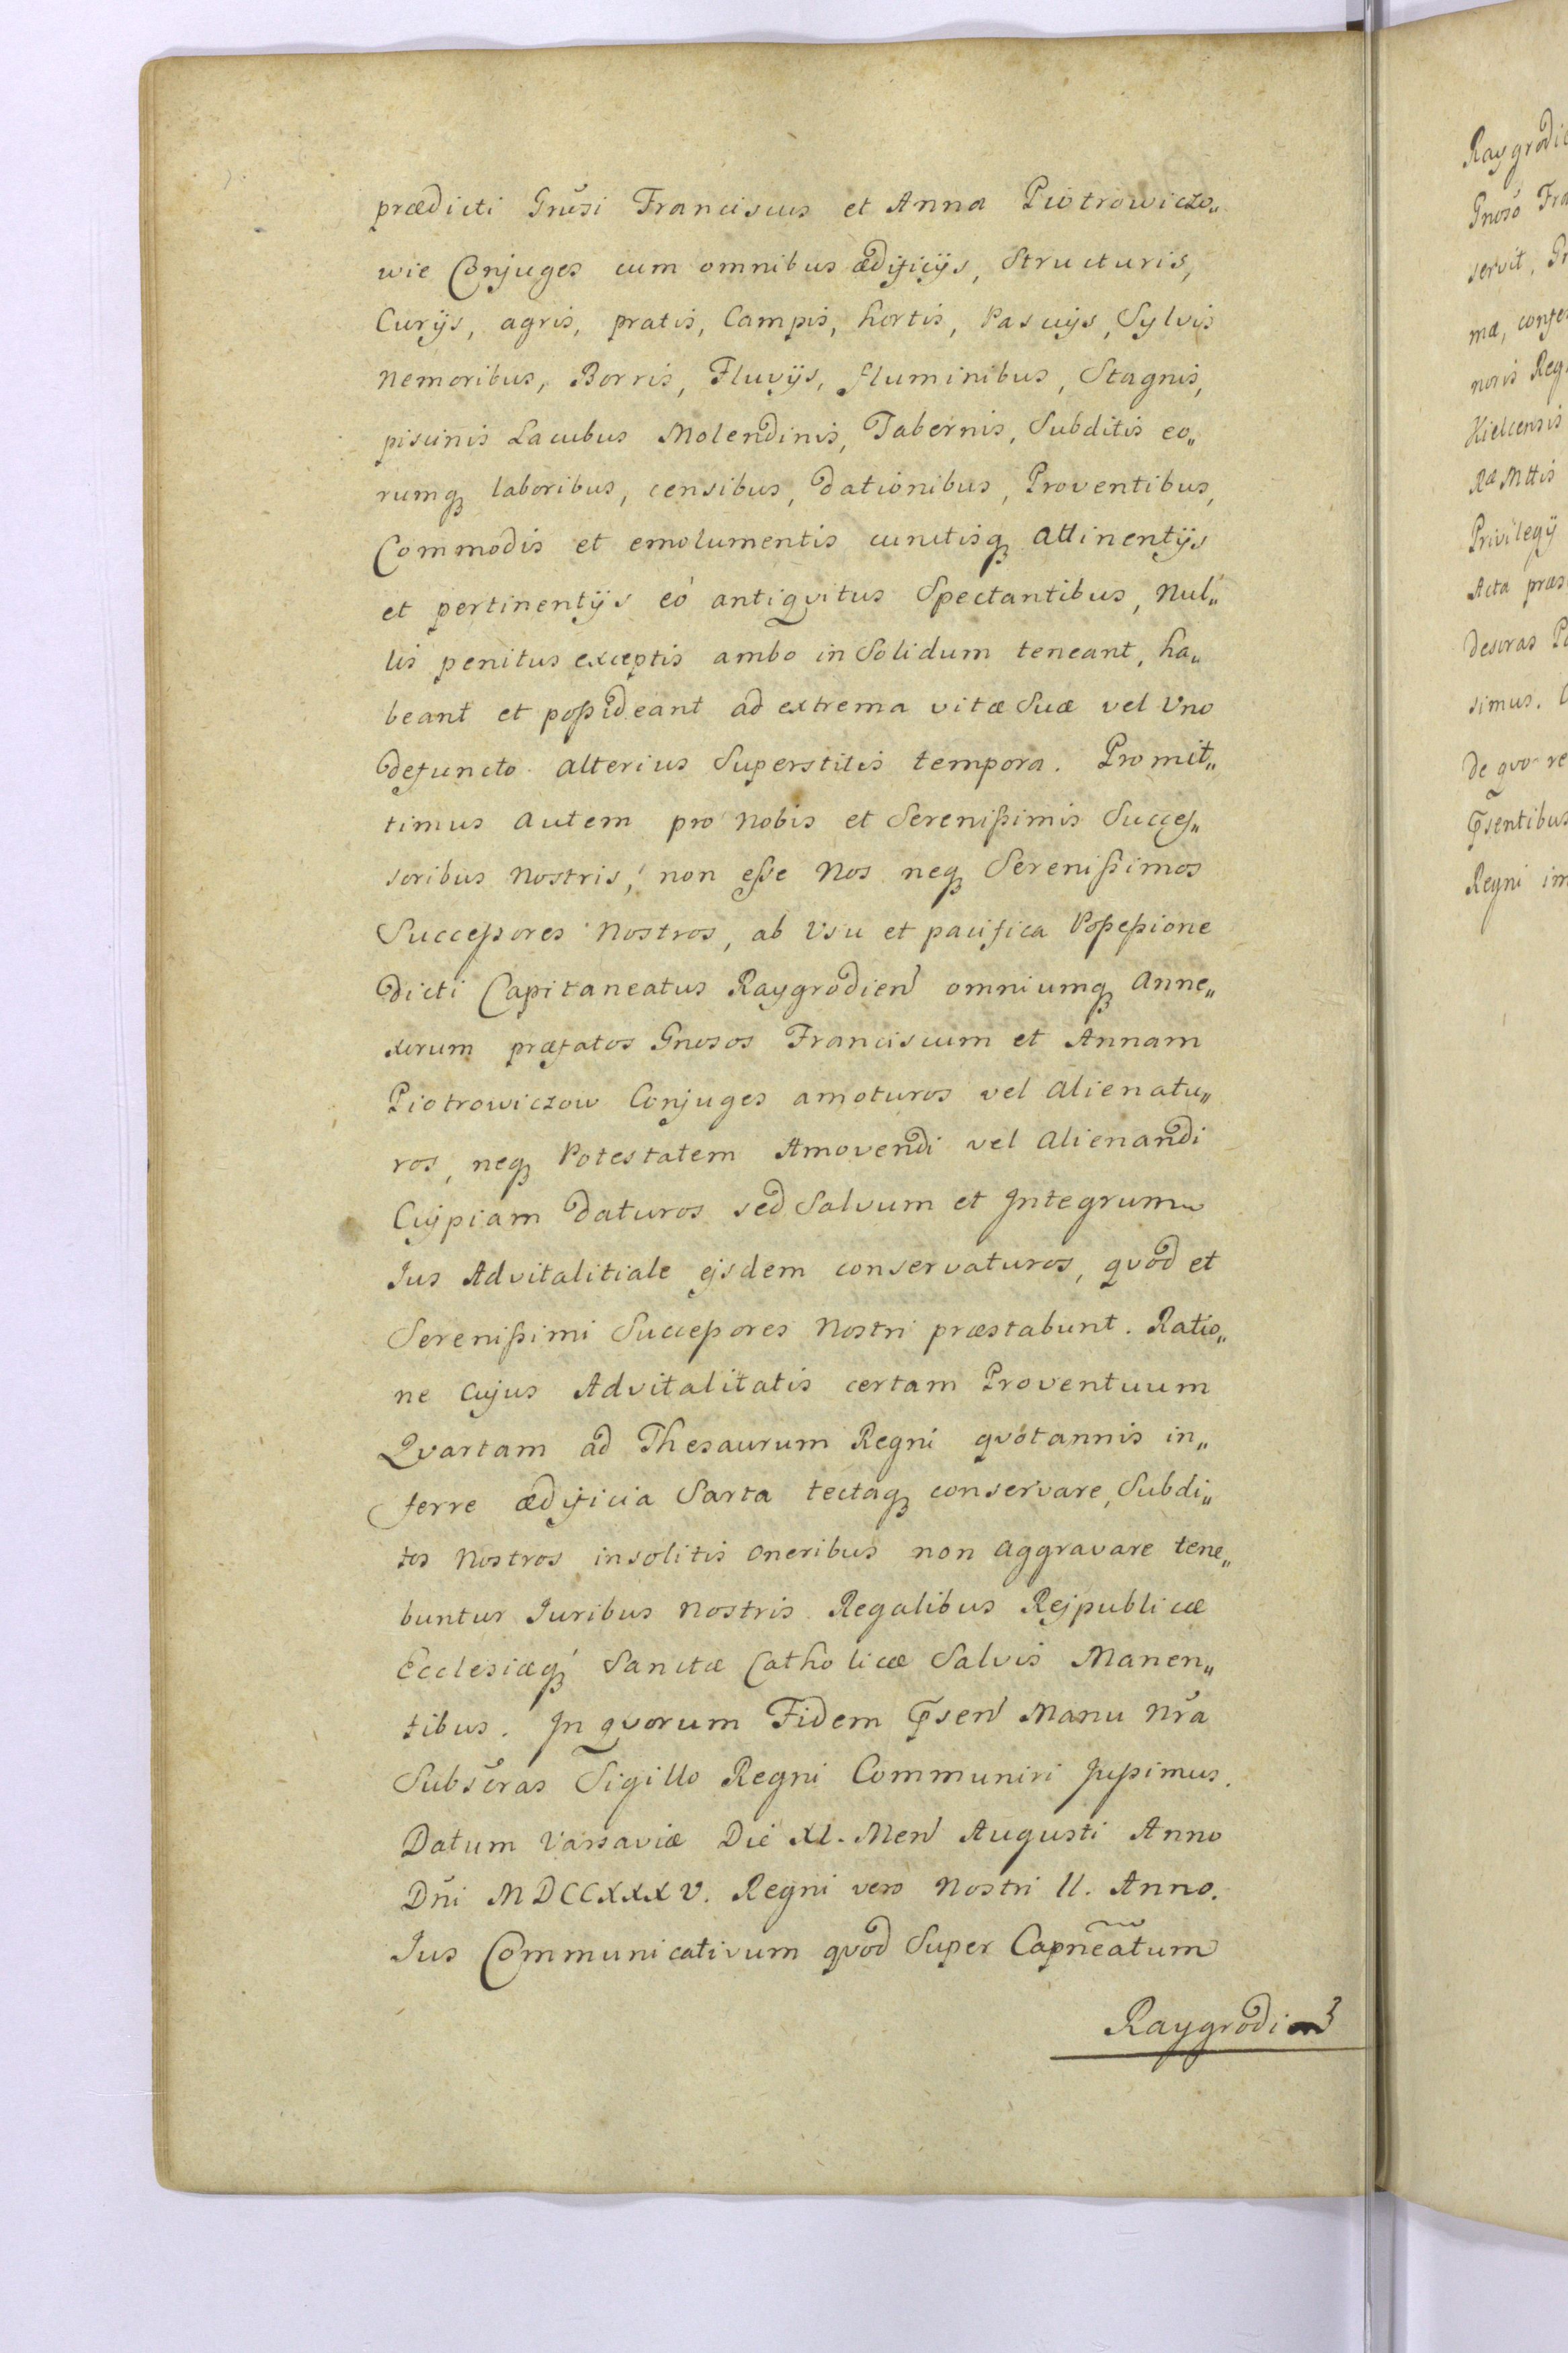 prædicti Gnŭsi Franciscus et Anna Piotrowiczo„
wie Conjuges cum omnibus ædificijs, Structuris,
Curijs, agris, pratis, Campis, hortis, Pascuijs, Sylvis
Nemoribus, Borris, Fluvijs, fluminibus, Stagnis,
piscinis Lacubus Molendinis, Tabernis, Subditis eo„
rumq laboribus, censibus, dationibus, Proventibus,
Commodis et emolumentis cunctisq attinentijs
et pertinentijs eó antiqvitus Spectantibus, Nul„
lis penitus exceptis ambo in Solidum teneant, ha„
beant et poßideant ad extrema vitæ Suæ vel Vno
defuncto alterius Superstitis tempora. Promit„
timus autem pro Nobis et Serenißimis Succeſ„
soribus Nostris, non eſse Nos neq Serenißimos
Succeßores Nostros, ab Vsu et pacifica Poßeßione
dicti Capitaneatus Raygrodien omniumq Anne„
xorum præfatos Gnosos Franciscum et Annam
Piotrowiczow Conjuges amoturos vel alienatu„
ros, neq Potestatem Amovendi vel alienandi
Cuipiam daturos sed Salvum et Integrum
Jus Advitalitiale ejsdem conservaturos, qvod et
Serenißimi Succeßores Nostri præstabunt. Ratio„
ne Cujus Advitalitatis certam Proventuum
Qvartam ad Thesaurum Regni qvotannis in„
ferre ædificia Sarta tectaq conservare, Subdi„
tos Nostros insolitis oneribus non aggravare tene„
buntur Juribus Nostris Regalibus Rejpublicæ
Ecclesiæq Sanctæ Catholicæ Salvis Manen„
tibus. In qvorum Fidem Psen Manu Nrã
Subscras Sigillo Regni Communiri Jußimus.
Datum Varsaviæ Die XI. Men Augusti Anno
Dñi MDCCXXXV. Regni vero Nostri II. Anno.
Jus Communicativum qvod Super Capneatum
Raygrodien
Raygrodie
Gnoso Fra
servit, Gr
mæ, confe
noris Reg
Kielcensis
Ræ Mttis
Privilegij
Acta præs
descras
simus.
de qvo re
Psentibus
Regni im